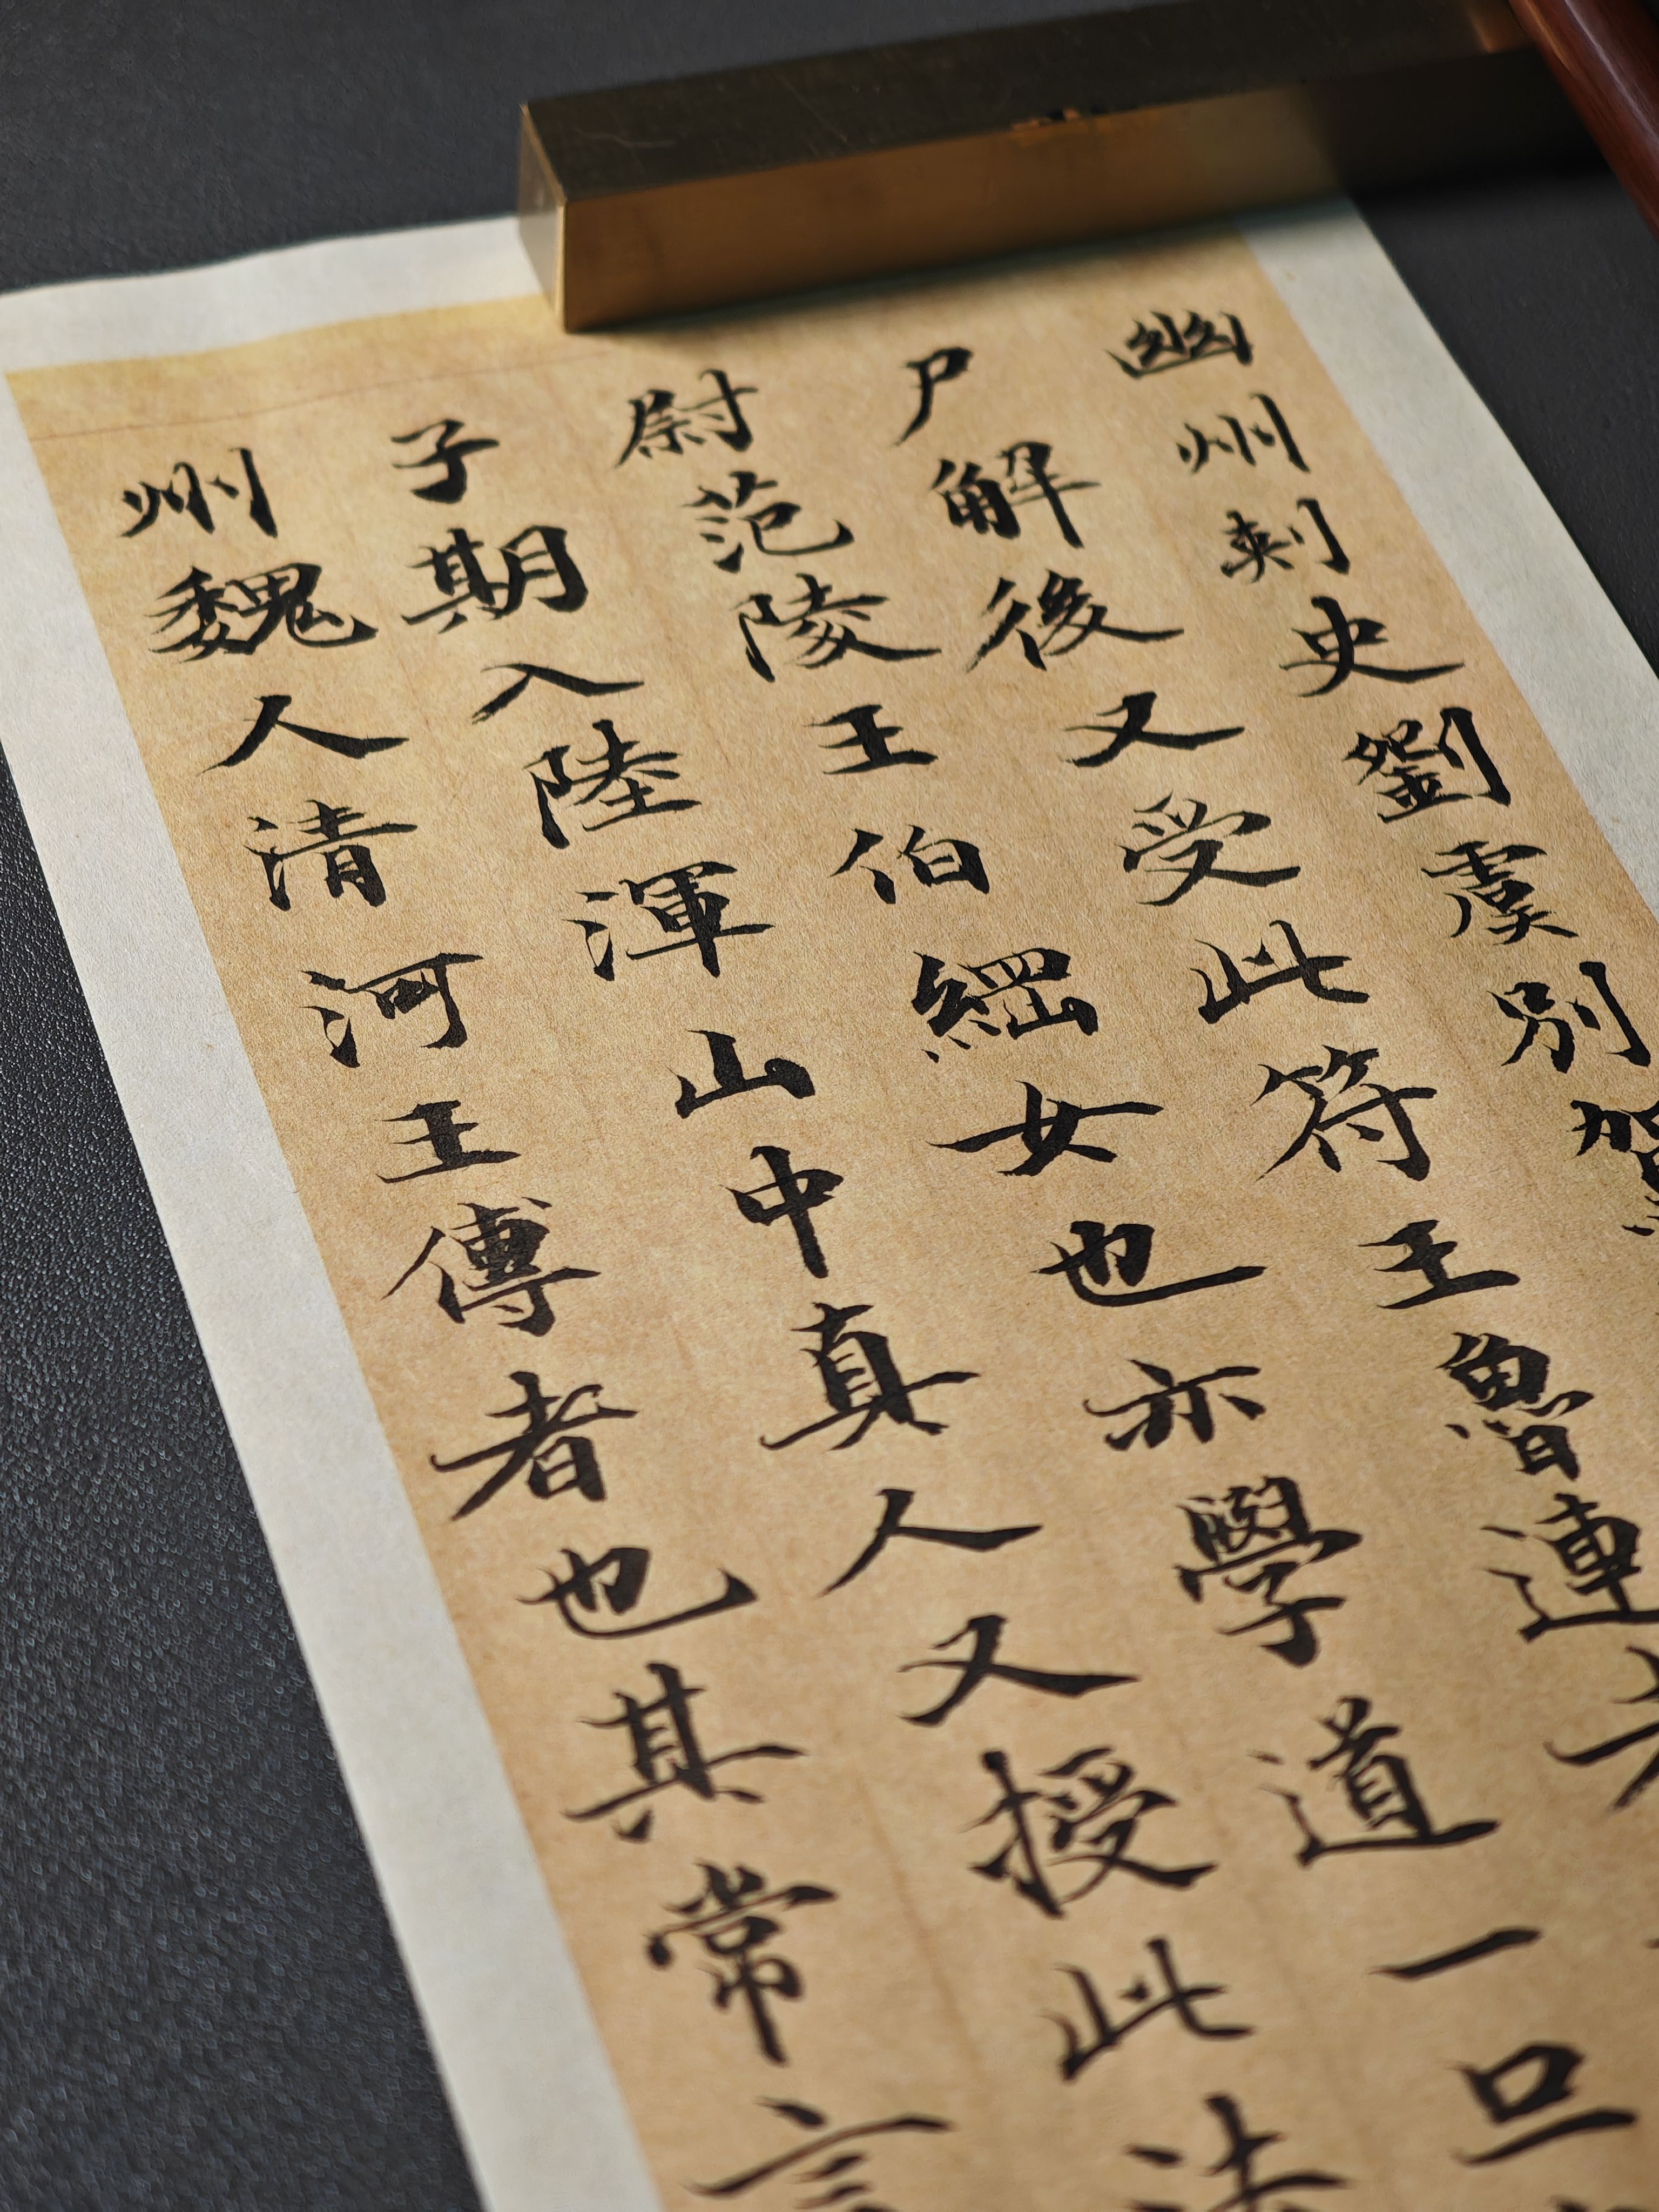 幽州刺史劉虞別駕
尸解後又受此符王魯連者
尉范陵王伯綱女也亦學道一旦
子期入陸渾山中真人又授此法
州魏人清河王傅者也其常言